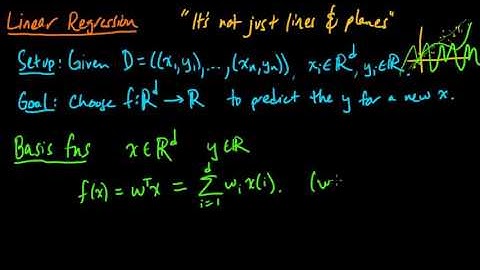 Linear Regression "It's not just lines & planes"
Setup: Given D = ((x₁, y₁), ..., (xₙ, yₙ)), xᵢ ∈ ℝᵈ, yᵢ ∈ ℝ
Goal: Choose f: ℝᵈ → ℝ to predict the y for a new x.
Basis fns x ∈ ℝᵈ y ∈ ℝ
f(x) = wᵀx = ∑ᵢ₌₁ᵈ wᵢ x(i). (w